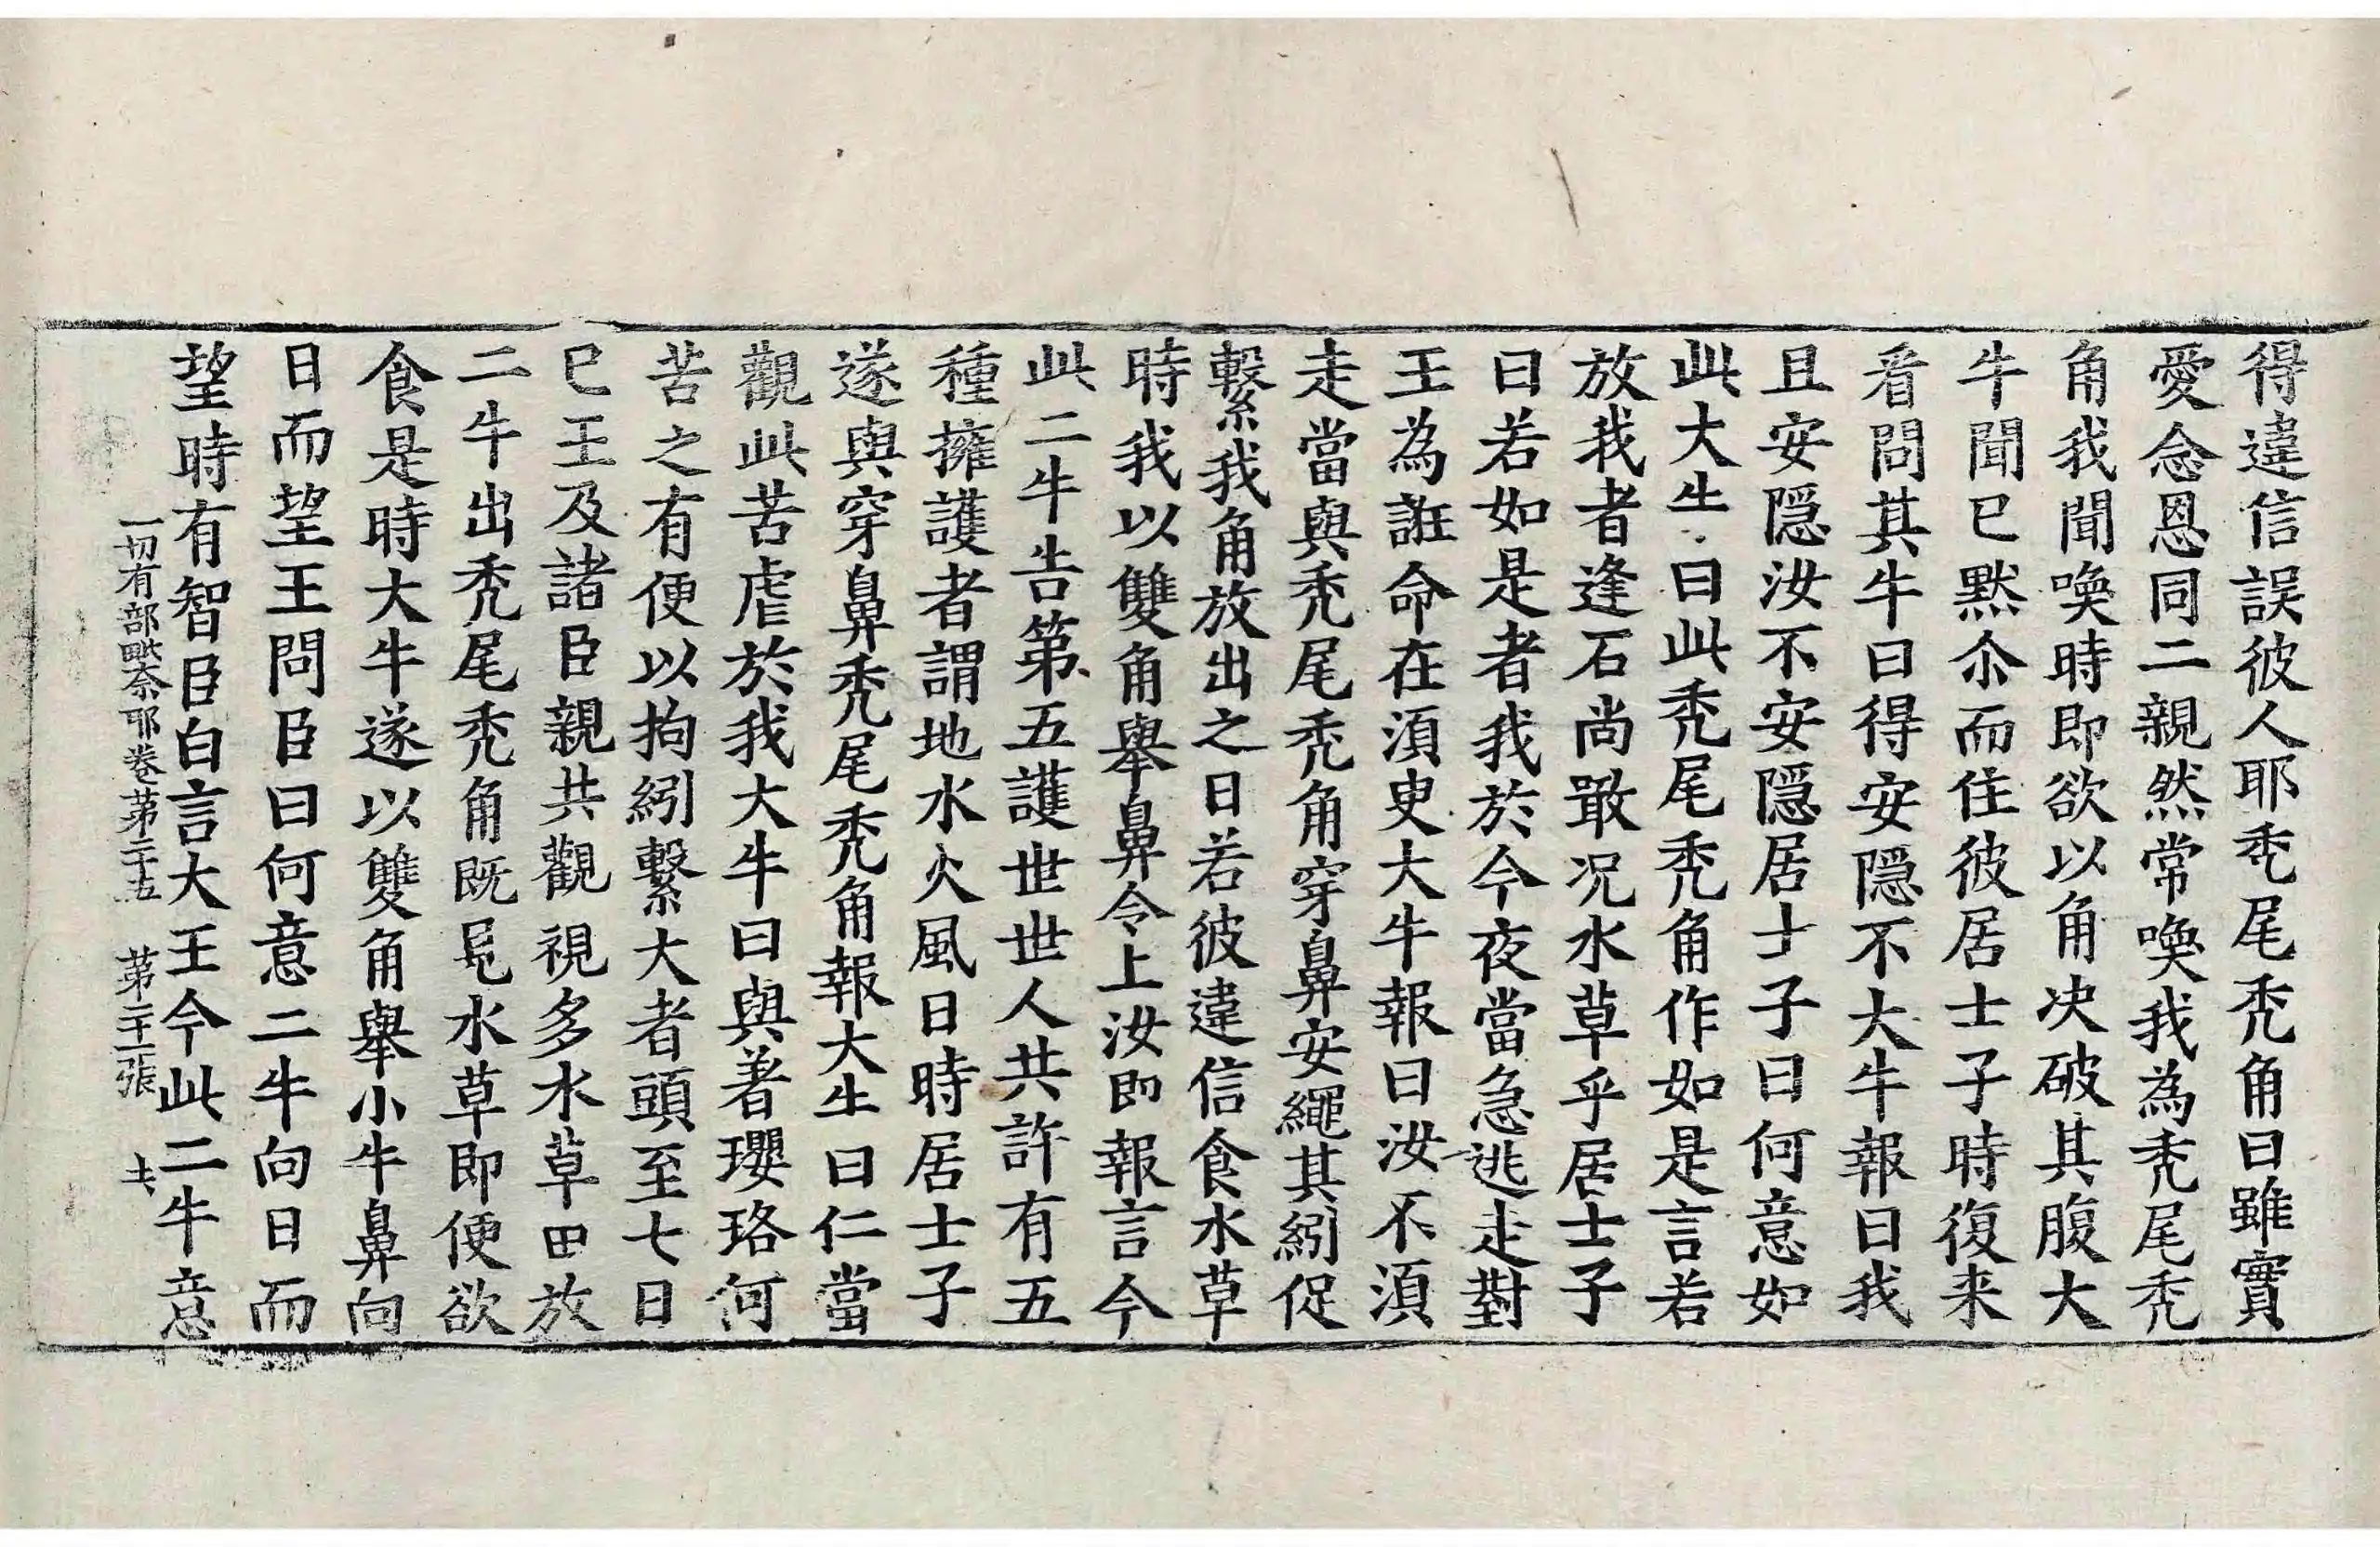 得違信誤彼人耶秃尾秃角曰雖實
愛念恩同二親然常喚我為秃尾秃
角我聞喚時即欲以角决破其腹大
牛聞已黙尒而住彼居士子時復来
看問其牛曰得安隠不大牛報曰我
且安隠汝不安隠居士子曰何意如
此大生曰此秃尾秃角作如是言若
放我者逢石尚噉况水草乎居士子
曰若如是者我於今夜當急逃走對
王為誑命在湏臾大牛報曰汝不湏
走當與秃尾秃角穿鼻安繩其紖促
繫我角放出之日若彼違信食水草
時我以雙角舉鼻令上汝即報言今
此二牛告第五護世世人共許有五
種擁護者謂地水火風日時居士子
遂與穿鼻秃尾秃角報大生曰仁當
觀此苦虐於我大牛曰與著瓔珞何
苦之有便以拘紖繫大者頭至七日
已王及諸臣親共觀視多水草田放
二牛出秃尾秃角既見水草即便欲
食是時大牛遂以雙角舉小牛鼻向
日而望王問臣曰何意二牛向日而
望時有智臣白言大王今此二牛意
一切有部毗奈耶卷第二十五 第二十二張 去